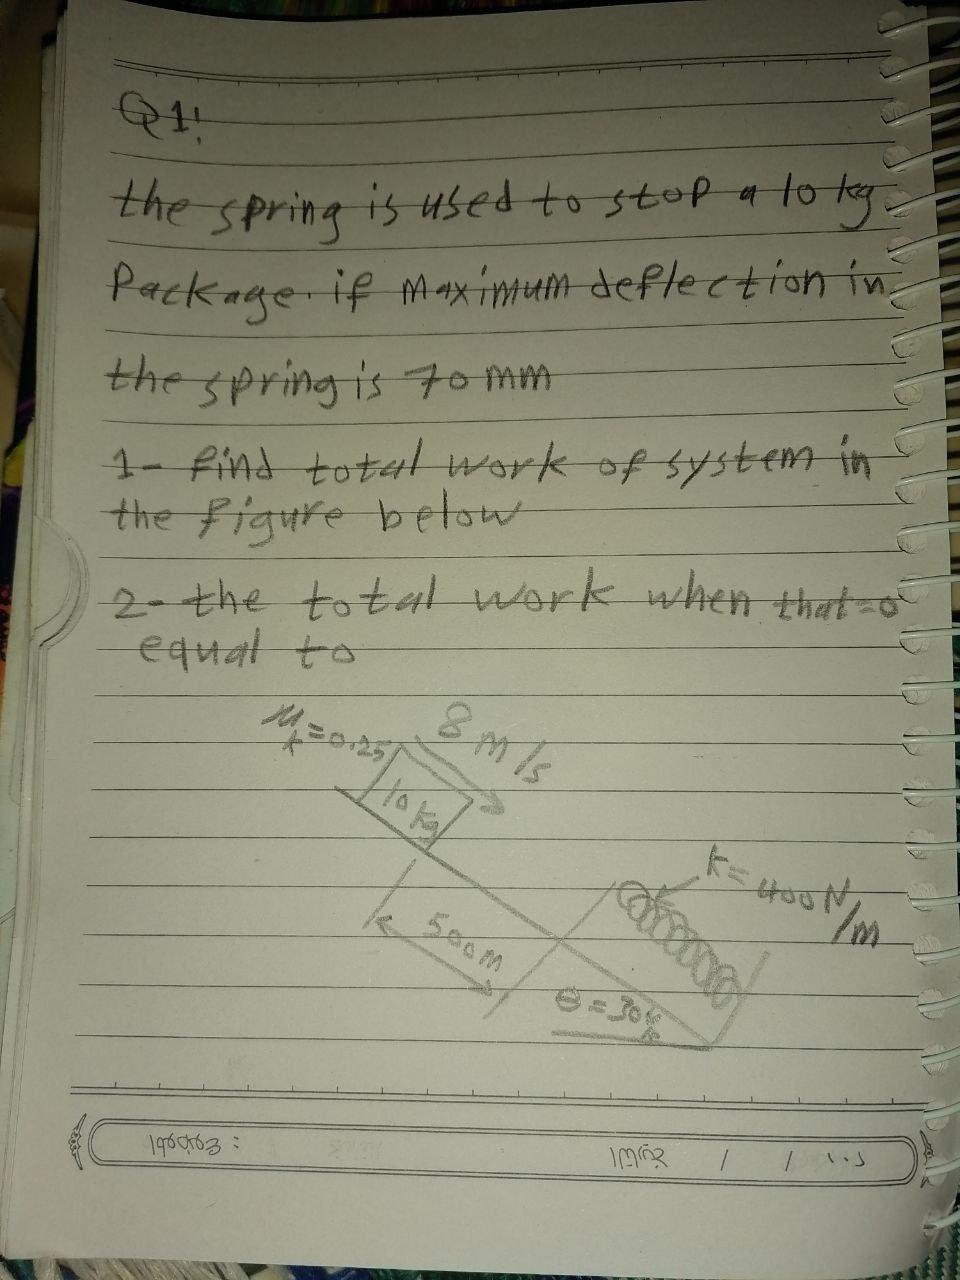 Q1:
the spring is used to stop a 10 kg
Package. if maximum deflection in
the spring is 70 mm
1- find total work of system in
the figure below
2- the total work when that=0
equal to
μk=0.25
8 m/s
10 kg
k=400 N/m
500m
θ=30